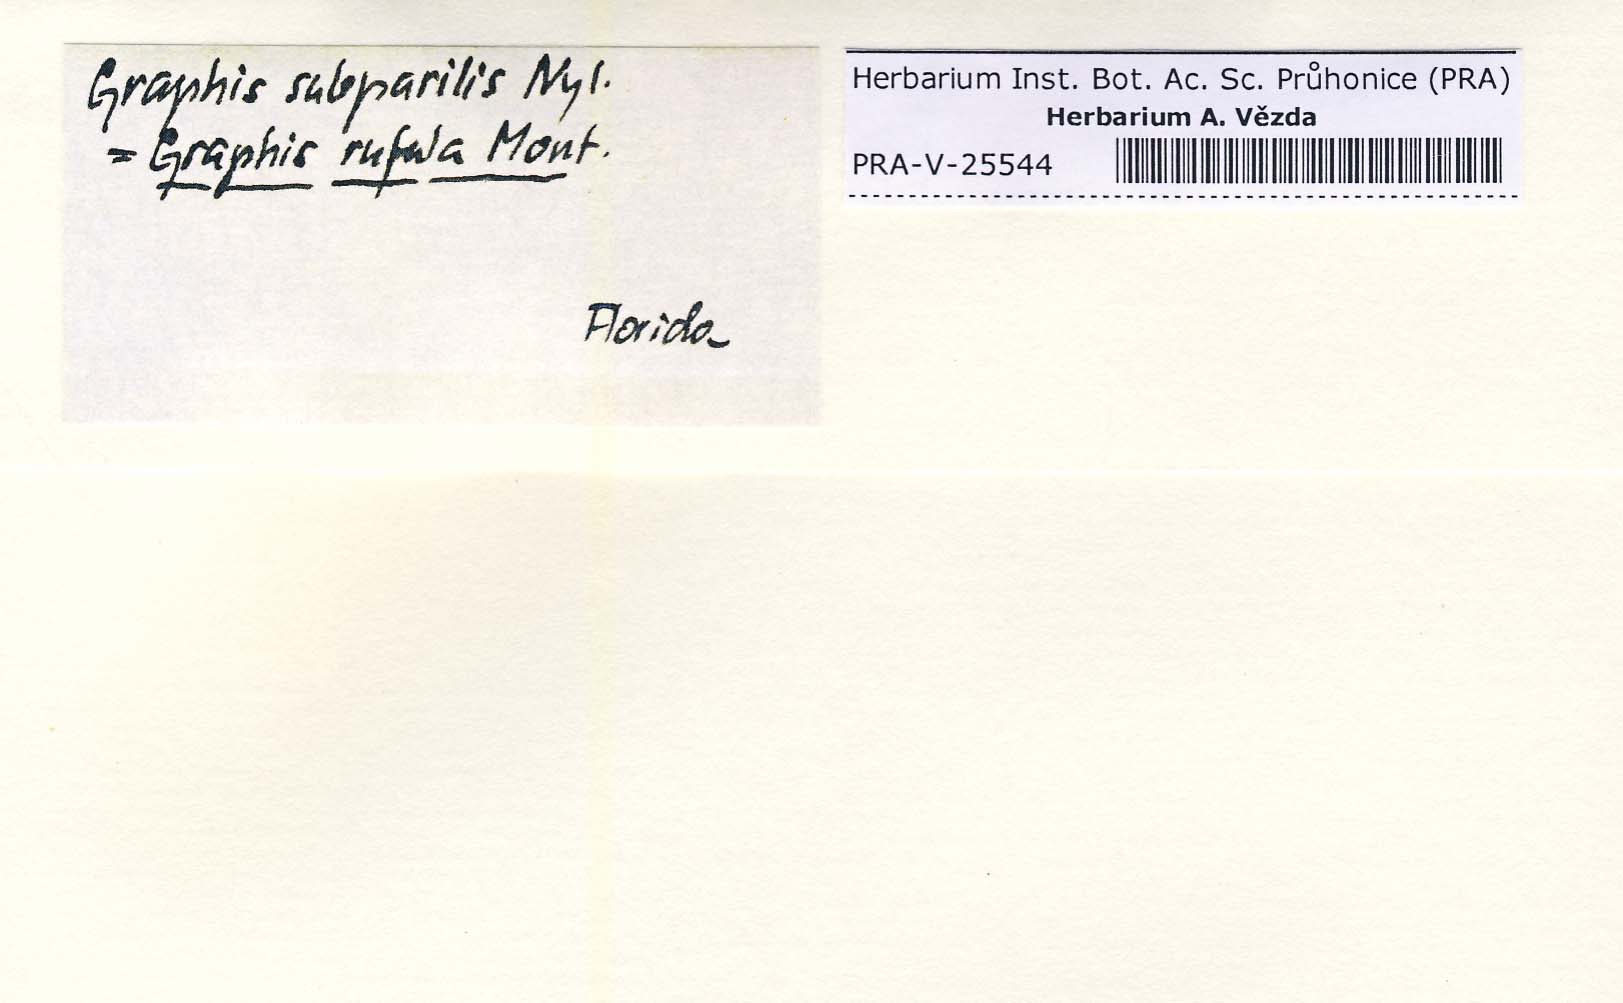 Graphis subparilis Nyl.
= Graphis rufula Mont.
Florida
Herbarium Inst. Bot. Ac. Sc. Průhonice (PRA)
Herbarium A. Vězda
PRA-V-25544